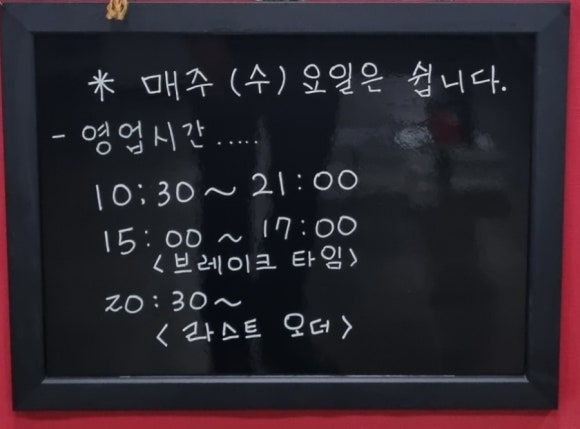 * 매주 (수) 요일은 쉽니다.
- 영업시간 .....
10:30 ~ 21:00
15:00 ~ 17:00
<브레이크 타임>
20:30~
<라스트 오더>